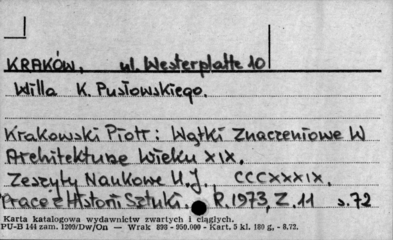 KRAKÓW, ul. Westerplatte 10
Willa K. Pusłowskiego.
Krakowski Piotr: Wątki Znaczeniowe W
Architekturze Wieku XIX.
Zeszyty Naukowe U.J. CCCXXXIX.
Prace z Historii Sztuki. R.1973, Z. 11 s.72
Karta katalogowa wydawnictw zwartych i ciągłych.
PU-B 144 zam. 1209/Dw/On — Wrak 898 - 950.000 - Kart. 5 kl. 180 g, - 8.72.